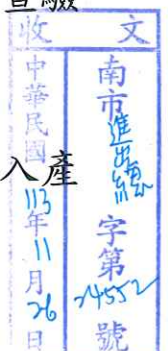 收文
南市進出總字第24552號
中華民國113年11月26日
入產